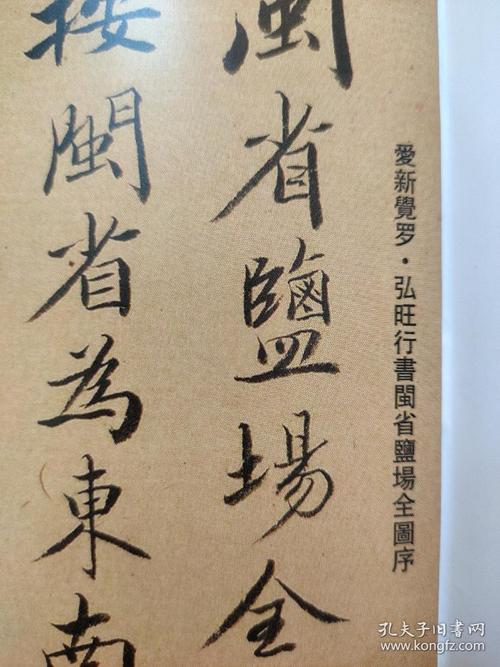 愛新覺罗·弘旺行書閩省鹽場全圖序
閩省鹽場全
按閩省為東南
孔夫子旧书网
www.kongfz.com